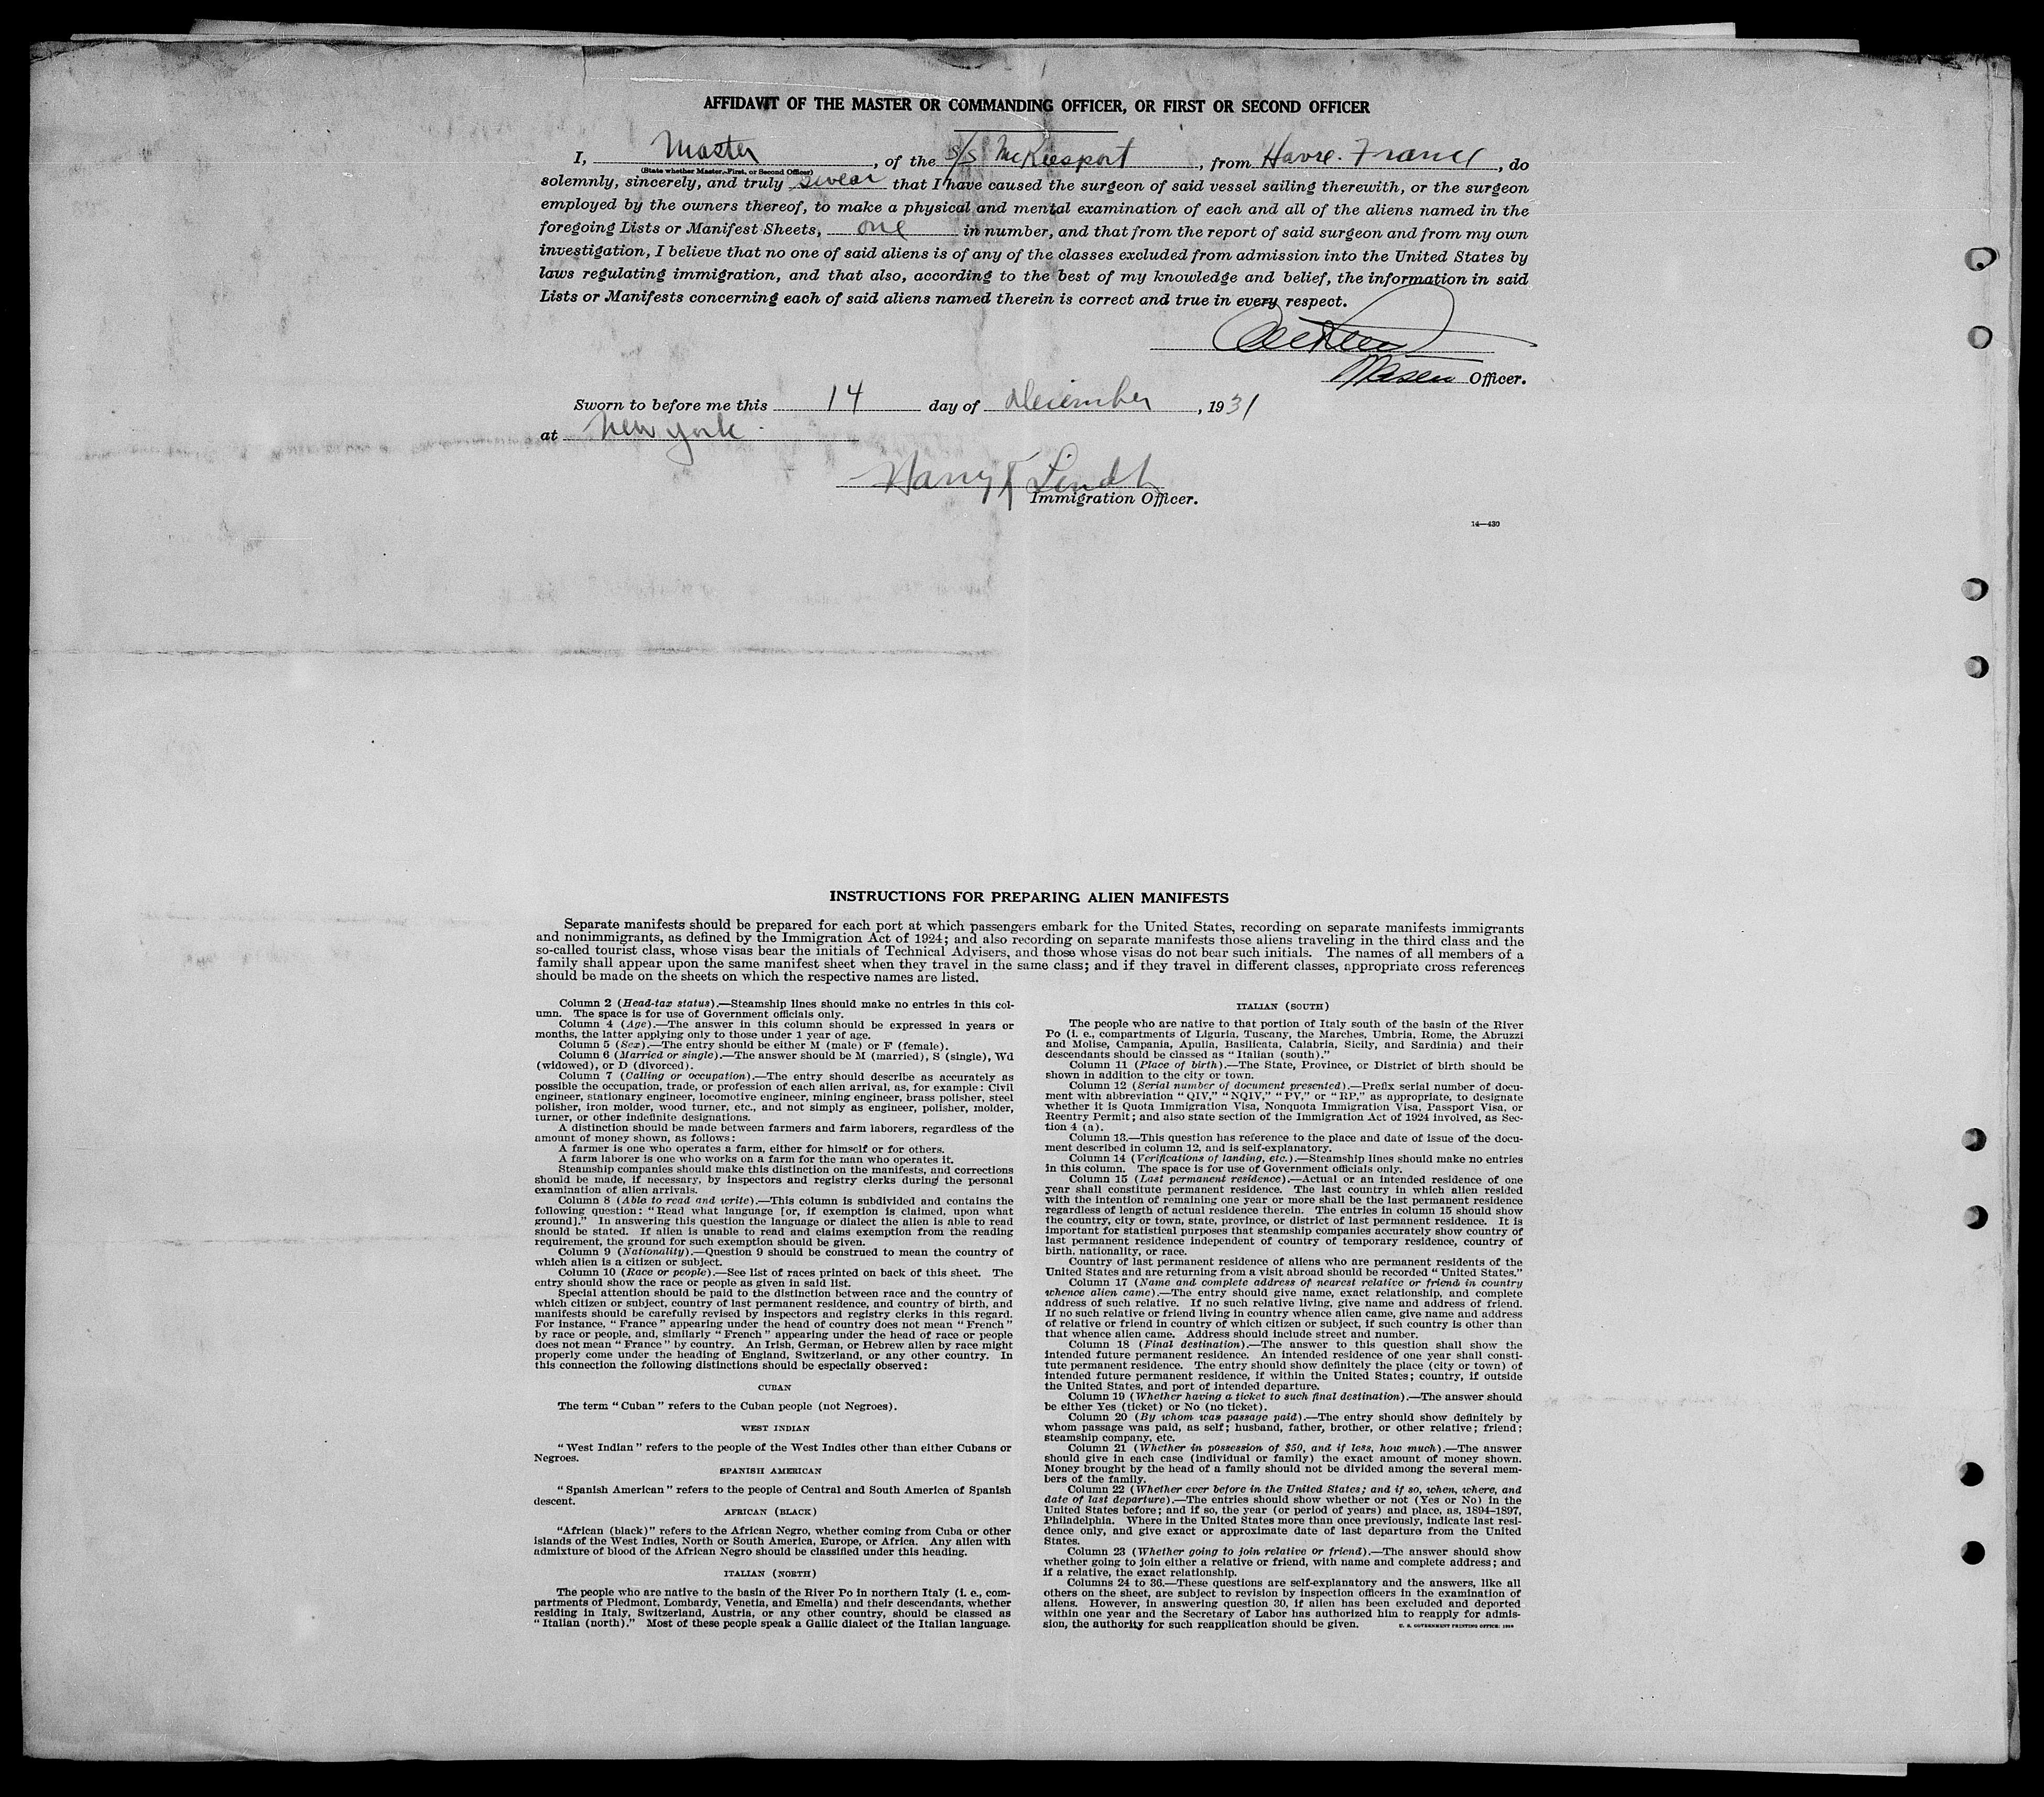 AFFIDAVIT OF THE MASTER OR COMMANDING OFFICER, OR FIRST OR SECOND OFFICER
I, Master, of the S/S McKeesport, from Havre. France, do
(State whether Master, First, or Second Officer)
solemnly, sincerely, and truly swear that I have caused the surgeon of said vessel sailing therewith, or the surgeon
employed by the owners thereof, to make a physical and mental examination of each and all of the aliens named in the
foregoing Lists or Manifest Sheets, one in number, and that from the report of said surgeon and from my own
investigation, I believe that no one of said aliens is of any of the classes excluded from admission into the United States by
laws regulating immigration, and that also, according to the best of my knowledge and belief, the information in said
Lists or Manifests concerning each of said aliens named therein is correct and true in every respect.
Officer.
Sworn to before me this 14 day of December, 1931
at New York.
Harry Lindt
Immigration Officer.
14—430
INSTRUCTIONS FOR PREPARING ALIEN MANIFESTS
Separate manifests should be prepared for each port at which passengers embark for the United States, recording on separate manifests immigrants
and nonimmigrants, as defined by the Immigration Act of 1924; and also recording on separate manifests those aliens traveling in the third class and the
so-called tourist class, whose visas bear the initials of Technical Advisers, and those whose visas do not bear such initials. The names of all members of a
family shall appear upon the same manifest sheet when they travel in the same class; and if they travel in different classes, appropriate cross references
should be made on the sheets on which the respective names are listed.
Column 2 (Head-tax status).—Steamship lines should make no entries in this col-
umn. The space is for use of Government officials only.
Column 4 (Age).—The answer in this column should be expressed in years or
months, the latter applying only to those under 1 year of age.
Column 5 (Sex).—The entry should be either M (male) or F (female).
Column 6 (Married or single).—The answer should be M (married), S (single), Wd
(widowed), or D (divorced).
Column 7 (Calling or occupation).—The entry should describe as accurately as
possible the occupation, trade, or profession of each alien arrival, as, for example: Civil
engineer, stationary engineer, locomotive engineer, mining engineer, brass polisher, steel
polisher, iron molder, wood turner, etc., and not simply as engineer, polisher, molder,
turner, or other indefinite designations.
A distinction should be made between farmers and farm laborers, regardless of the
amount of money shown, as follows:
A farmer is one who operates a farm, either for himself or for others.
A farm laborer is one who works on a farm for the man who operates it.
Steamship companies should make this distinction on the manifests, and corrections
should be made, if necessary, by inspectors and registry clerks during the personal
examination of alien arrivals.
Column 8 (Able to read and write).—This column is subdivided and contains the
following question: "Read what language [or, if exemption is claimed, upon what
ground]." In answering this question the language or dialect the alien is able to read
should be stated. If alien is unable to read and claims exemption from the reading
requirement, the ground for such exemption should be given.
Column 9 (Nationality).—Question 9 should be construed to mean the country of
which alien is a citizen or subject.
Column 10 (Race or people).—See list of races printed on back of this sheet. The
entry should show the race or people as given in said list.
Special attention should be paid to the distinction between race and the country of
which citizen or subject, country of last permanent residence, and country of birth, and
manifests should be carefully revised by inspectors and registry clerks in this regard.
For instance, "France" appearing under the head of country does not mean "French"
by race or people, and, similarly "French" appearing under the head of race or people
does not mean "France" by country. An Irish, German, or Hebrew alien by race might
properly come under the heading of England, Switzerland, or any other country. In
this connection the following distinctions should be especially observed:
CUBAN
The term "Cuban" refers to the Cuban people (not Negroes).
WEST INDIAN
"West Indian" refers to the people of the West Indies other than either Cubans or
Negroes.
SPANISH AMERICAN
"Spanish American" refers to the people of Central and South America of Spanish
descent.
AFRICAN (BLACK)
"African (black)" refers to the African Negro, whether coming from Cuba or other
islands of the West Indies, North or South America, Europe, or Africa. Any alien with
admixture of blood of the African Negro should be classified under this heading.
ITALIAN (NORTH)
The people who are native to the basin of the River Po in northern Italy (i. e., com-
partments of Piedmont, Lombardy, Venetia, and Emelia) and their descendants, whether
residing in Italy, Switzerland, Austria, or any other country, should be classed as
"Italian (north)." Most of these people speak a Gallic dialect of the Italian language.
ITALIAN (SOUTH)
The people who are native to that portion of Italy south of the basin of the River
Po (i. e., compartments of Liguria, Tuscany, the Marches, Umbria, Rome, the Abruzzi
and Molise, Campania, Apulia, Basilicata, Calabria, Sicily, and Sardinia) and their
descendants should be classed as "Italian (south)."
Column 11 (Place of birth).—The State, Province, or District of birth should be
shown in addition to the city or town.
Column 12 (Serial number of document presented).—Prefix serial number of docu-
ment with abbreviation "QIV," "NQIV," "PV," or "RP," as appropriate, to designate
whether it is Quota Immigration Visa, Nonquota Immigration Visa, Passport Visa, or
Reentry Permit; and also state section of the Immigration Act of 1924 involved, as Sec-
tion 4 (a).
Column 13.—This question has reference to the place and date of issue of the docu-
ment described in column 12, and is self-explanatory.
Column 14 (Verifications of landing, etc.).—Steamship lines should make no entries
in this column. The space is for use of Government officials only.
Column 15 (Last permanent residence).—Actual or an intended residence of one
year shall constitute permanent residence. The last country in which alien resided
with the intention of remaining one year or more shall be the last permanent residence
regardless of length of actual residence therein. The entries in column 15 should show
the country, city or town, state, province, or district of last permanent residence. It is
important for statistical purposes that steamship companies accurately show country of
last permanent residence independent of country of temporary residence, country of
birth, nationality, or race.
Country of last permanent residence of aliens who are permanent residents of the
United States and are returning from a visit abroad should be recorded "United States."
Column 17 (Name and complete address of nearest relative or friend in country
whence alien came).—The entry should give name, exact relationship, and complete
address of such relative. If no such relative living, give name and address of friend.
If no such relative or friend living in country whence alien came, give name and address
of relative or friend in country of which citizen or subject, if such country is other than
that whence alien came. Address should include street and number.
Column 18 (Final destination).—The answer to this question shall show the
intended future permanent residence. An intended residence of one year shall consti-
tute permanent residence. The entry should show definitely the place (city or town) of
intended future permanent residence, if within the United States; country, if outside
the United States, and port of intended departure.
Column 19 (Whether having a ticket to such final destination).—The answer should
be either Yes (ticket) or No (no ticket).
Column 20 (By whom was passage paid).—The entry should show definitely by
whom passage was paid, as self; husband, father, brother, or other relative; friend;
steamship company, etc.
Column 21 (Whether in possession of $50, and if less, how much).—The answer
should give in each case (individual or family) the exact amount of money shown.
Money brought by the head of a family should not be divided among the several mem-
bers of the family.
Column 22 (Whether ever before in the United States; and if so, when, where, and
date of last departure).—The entries should show whether or not (Yes or No) in the
United States before; and if so, the year (or period of years) and place, as, 1894–1897,
Philadelphia. Where in the United States more than once previously, indicate last resi-
dence only, and give exact or approximate date of last departure from the United
States.
Column 23 (Whether going to join relative or friend).—The answer should show
whether going to join either a relative or friend, with name and complete address; and
if a relative, the exact relationship.
Columns 24 to 36.—These questions are self-explanatory and the answers, like all
others on the sheet, are subject to revision by inspection officers in the examination of
aliens. However, in answering question 30, if alien has been excluded and deported
within one year and the Secretary of Labor has authorized him to reapply for admis-
sion, the authority for such reapplication should be given.
U. S. GOVERNMENT PRINTING OFFICE: